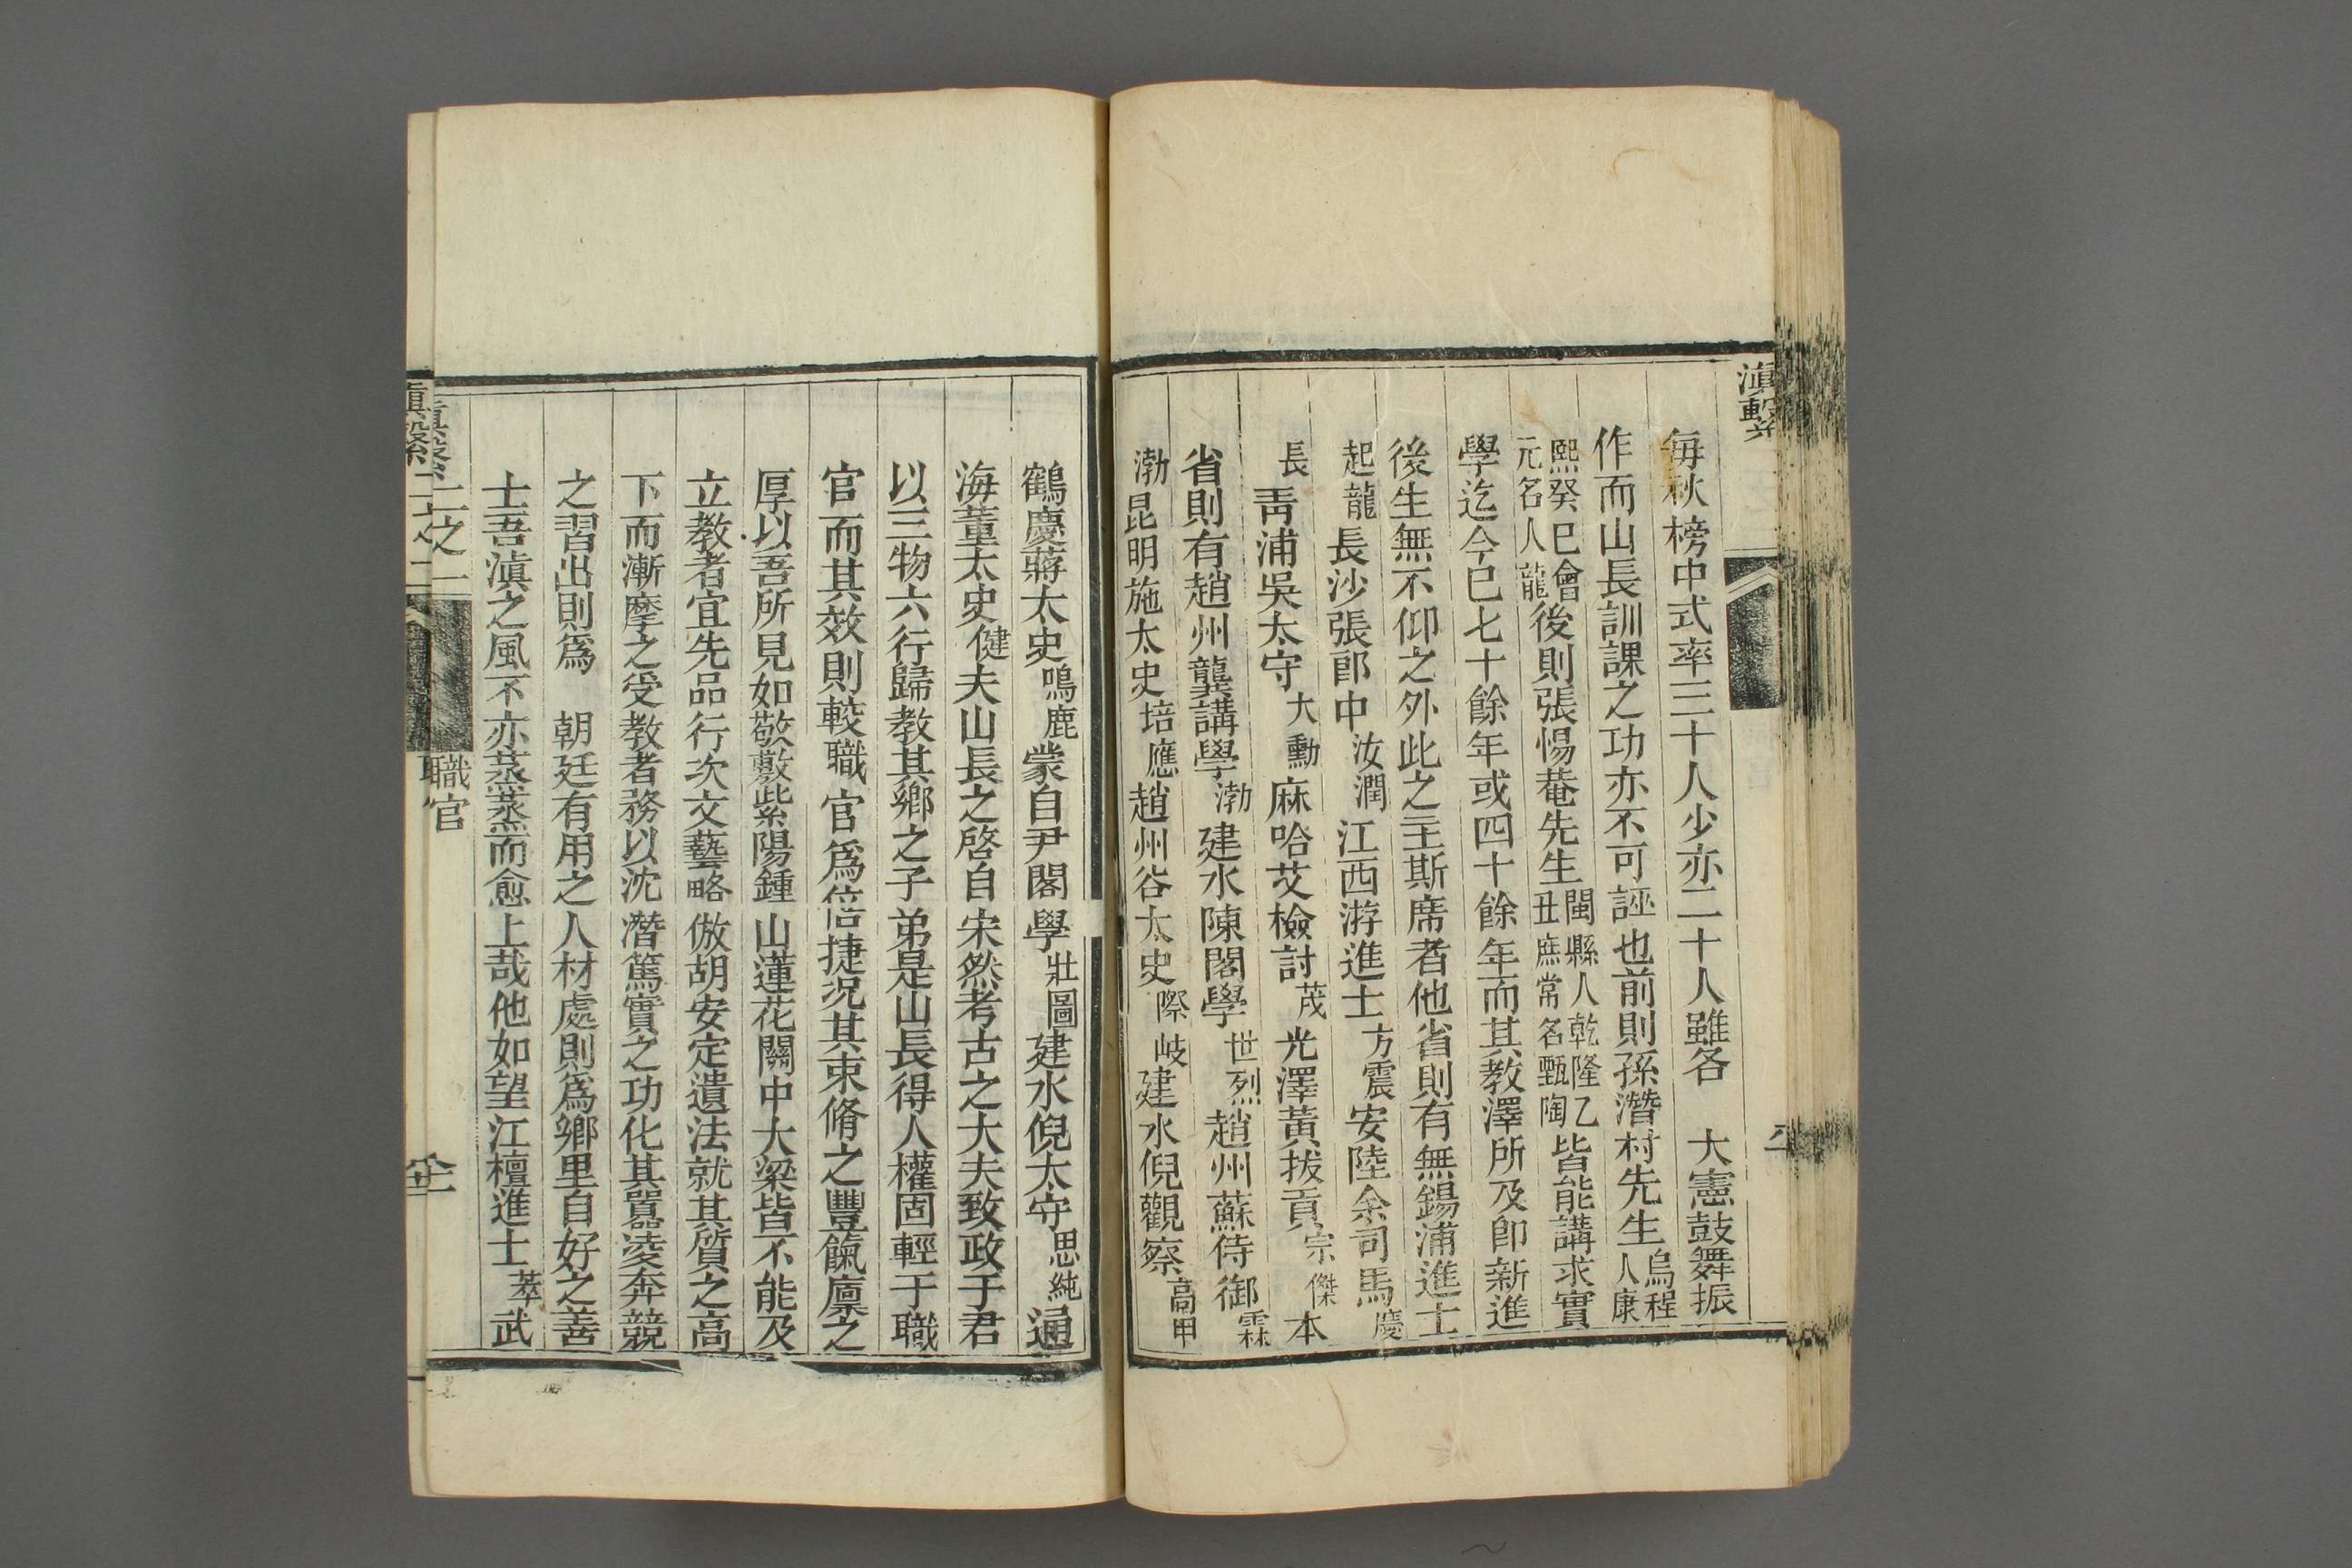 滇繫
每秋榜中式率三十人少亦二十人雖各　大憲鼓舞振
作而山長訓課之功亦不可誣也前則孫潛村先生烏程人康
熙癸巳會元名人龍後則張惕菴先生閩縣人乾隆乙丑庶常名甄陶皆能講求實
學迄今已七十餘年或四十餘年而其教澤所及卽新進
後生無不仰之外此之主斯席者他省則有無錫浦進士
起龍長沙張郎中汝潤江西游進士方震安陸余司馬慶
長靑浦吳太守大勳麻哈艾檢討茂光澤黃拔貢宗傑本
省則有趙州龔講學渤建水陳閣學世烈趙州蘇侍御霖
渤昆明施太史培應趙州谷太史際岐建水倪觀察高甲
鶴慶蔣太史鳴鹿蒙自尹閣學壯圖建水倪太守思純通
海董太史健夫山長之啓自宋然考古之大夫致政于君
以三物六行歸教其鄉之子弟是山長得人權固輕于職
官而其效則較職官爲倍捷況其束脩之豐餼廩之
厚以吾所見如敬敷紫陽鍾山蓮花關中大梁皆不能及
立教者宜先品行次文藝略倣胡安定遺法就其質之高
下而漸摩之受教者務以沈潛篤實之功化其囂凌奔競
之習出則爲　朝廷有用之人材處則爲鄉里自好之善
士吾滇之風不亦蒸蒸而愈上哉他如望江檀進士萃武
滇繫 二之二 職官